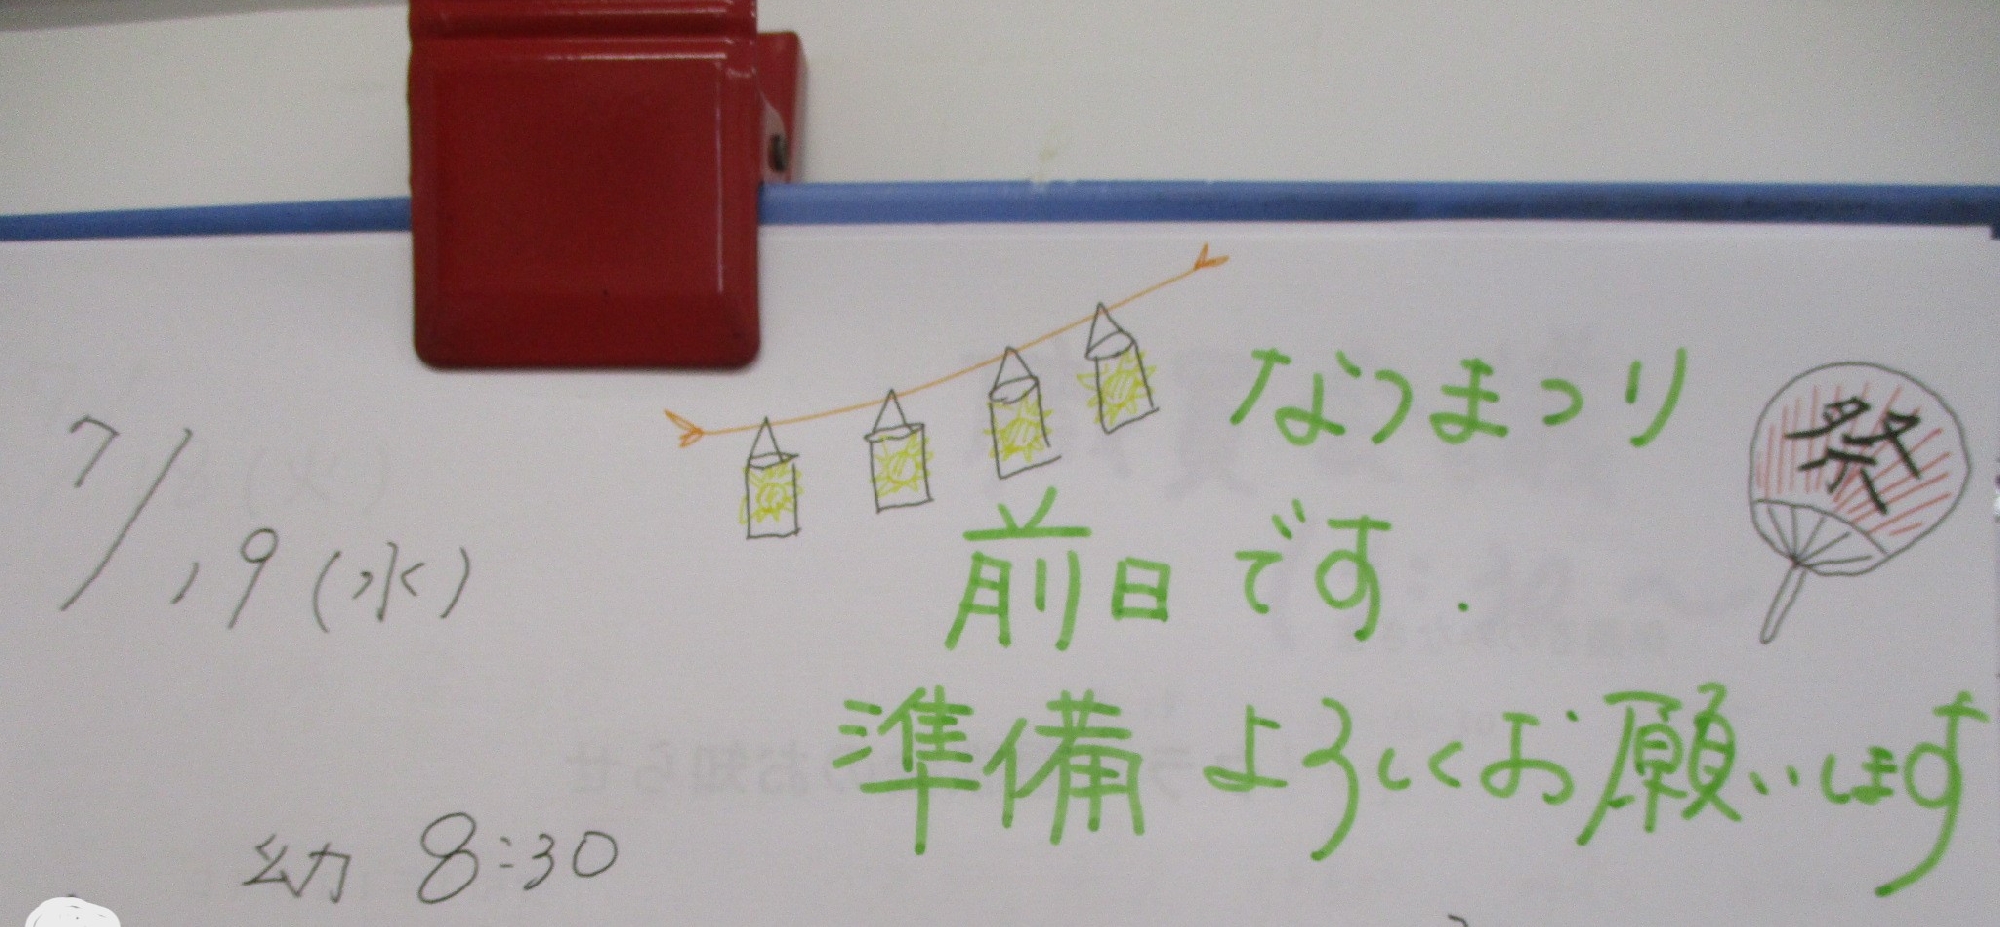 なつまつり
祭
7/19(水)
前日です.
準備よろしくお願いします
幼 8:30